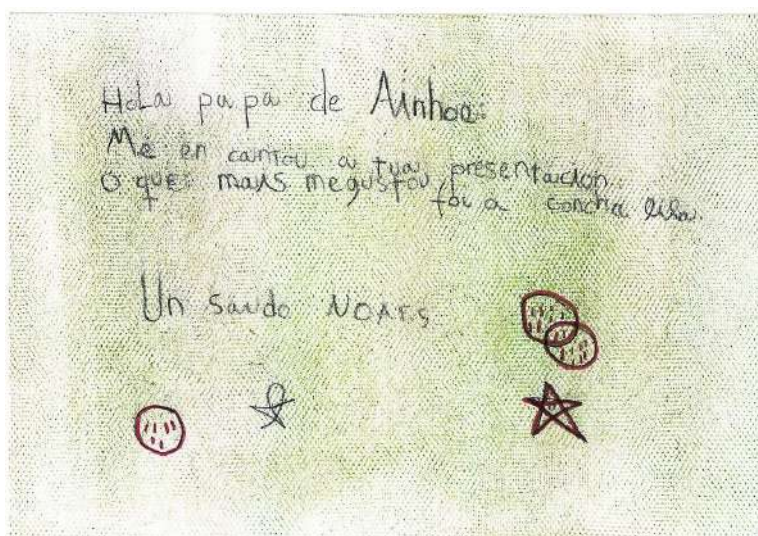 Hola papa de Ainhoa:
Me en cantou a tua presentación.
O que mais megustou foi a concha lila.
Un saudo NOA F.S